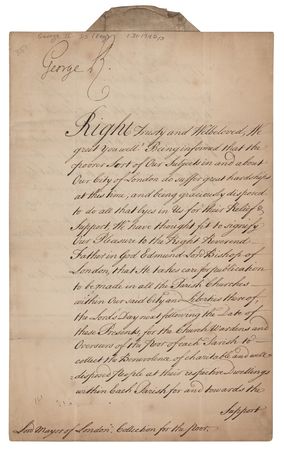 George II DS (Eng)
George R.
Right Trusty and Welbeloved, We
greet You well! Being informed that the
poorer Sort of Our Subjects in and about
Our City of London do suffer great hardships
at this time, and being graciously disposed
to do all that lyes in Us for their Relief &
Support, We have thought fit to signify
Our Pleasure to the Right Reverend
Father in God Edmund Lord Bishop of
London, that He takes care for publication
to be made in all the Parish Churches
within Our said City and Liberties thereof,
the Lord's Day next following the Date of
these Presents, for the Church Wardens and
Overseers of the Poor of each Parish to
collect the Benevolence of charitable and well
disposed People, at their respective Dwellings
within Each Parish for and towards the
Support
Lord Mayor of London. Collection for the Poor.